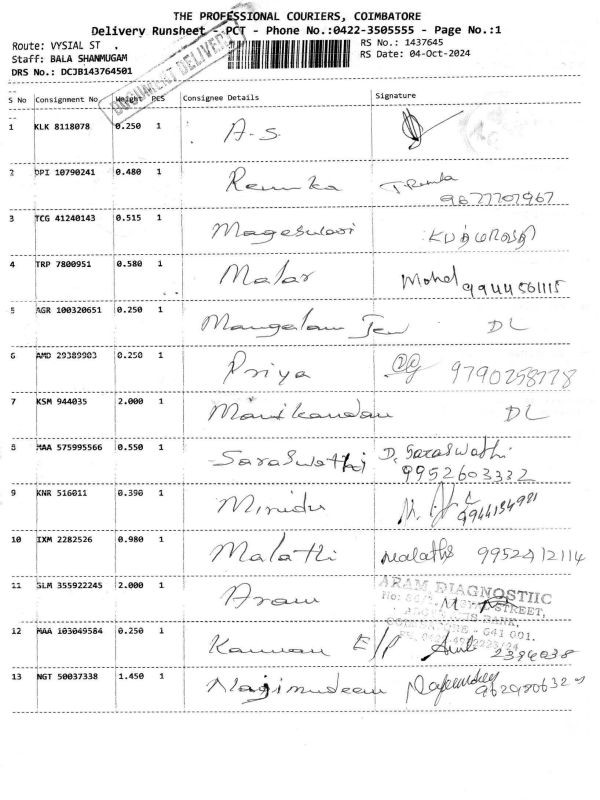 THE PROFESSIONAL COURIERS, COIMBATORE
Delivery Runsheet - PCT - Phone No.:0422-3505555 - Page No.:1
Route: VYSIAL ST .
RS No.: 1437645
Staff: BALA SHANMUGAM
RS Date: 04-Oct-2024
DRS No.: DCJB143764501
DOCUMENT DELIVERY
S No Consignment No Weight PCS Consignee Details Signature
1 KLK 8118078 0.250 1 A-S
2 DPI 10790241 0.480 1 Renuka
9677707967
3 TCG 41240143 0.515 1 Mageswari
4 TRP 7800951 0.580 1 Malar Mohel 9944561115
5 AGR 100320651 0.250 1 Mangalam Jew DL
6 AMD 29389903 0.250 1 Priya 9790258778
7 KSM 944035 2.000 1 Manikandan DL
8 MAA 575995566 0.550 1 Saraswathi D. Saraswathi
9952603332
9 KNR 516011 0.390 1
9944154981
10 IXM 2282526 0.980 1 Malathi Malathi 9952412114
11 SLM 355922245 2.000 1 Aram
ARAM DIAGNOSTIIC
STREET,
BANK,
- 641 001.
12 MAA 103049584 0.250 1 Kannan E/P
2384038
13 NGT 50037338 1.450 1 Nagimudeen